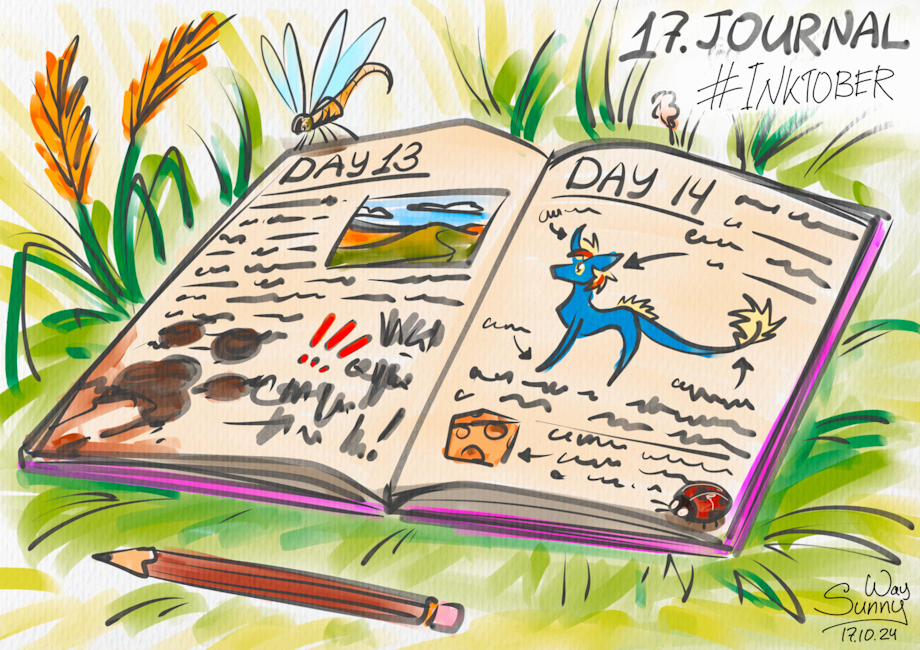 17. JOURNAL
#INKTOBER
DAY 13
DAY 14
!!!
Way
Sunny
17.10.24